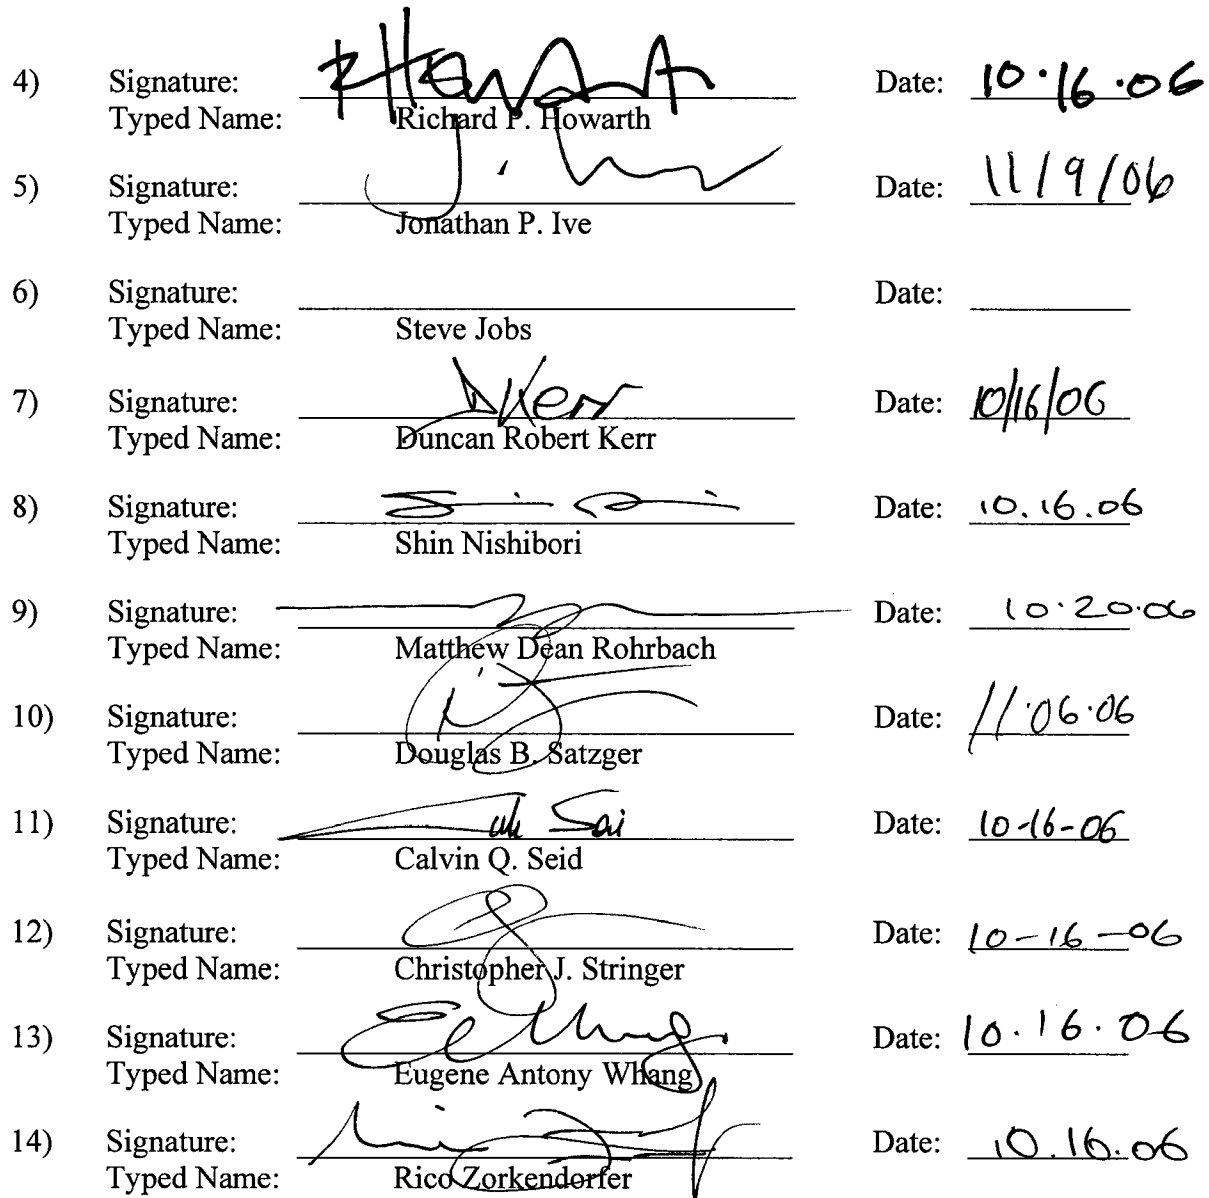 4) Signature: RHowarth Date: 10·16·06
Typed Name: Richard P. Howarth
5) Signature: Date: 11/9/06
Typed Name: Jonathan P. Ive
6) Signature: Date:
Typed Name: Steve Jobs
7) Signature: DKerr Date: 10/16/06
Typed Name: Duncan Robert Kerr
8) Signature: Date: 10.16.06
Typed Name: Shin Nishibori
9) Signature: Date: 10·20·06
Typed Name: Matthew Dean Rohrbach
10) Signature: Date: 11·06·06
Typed Name: Douglas B. Satzger
11) Signature: Date: 10-16-06
Typed Name: Calvin Q. Seid
12) Signature: Date: 10-16-06
Typed Name: Christopher J. Stringer
13) Signature: Date: 10·16·06
Typed Name: Eugene Antony Whang
14) Signature: Date: 10.16.06
Typed Name: Rico Zorkendorfer